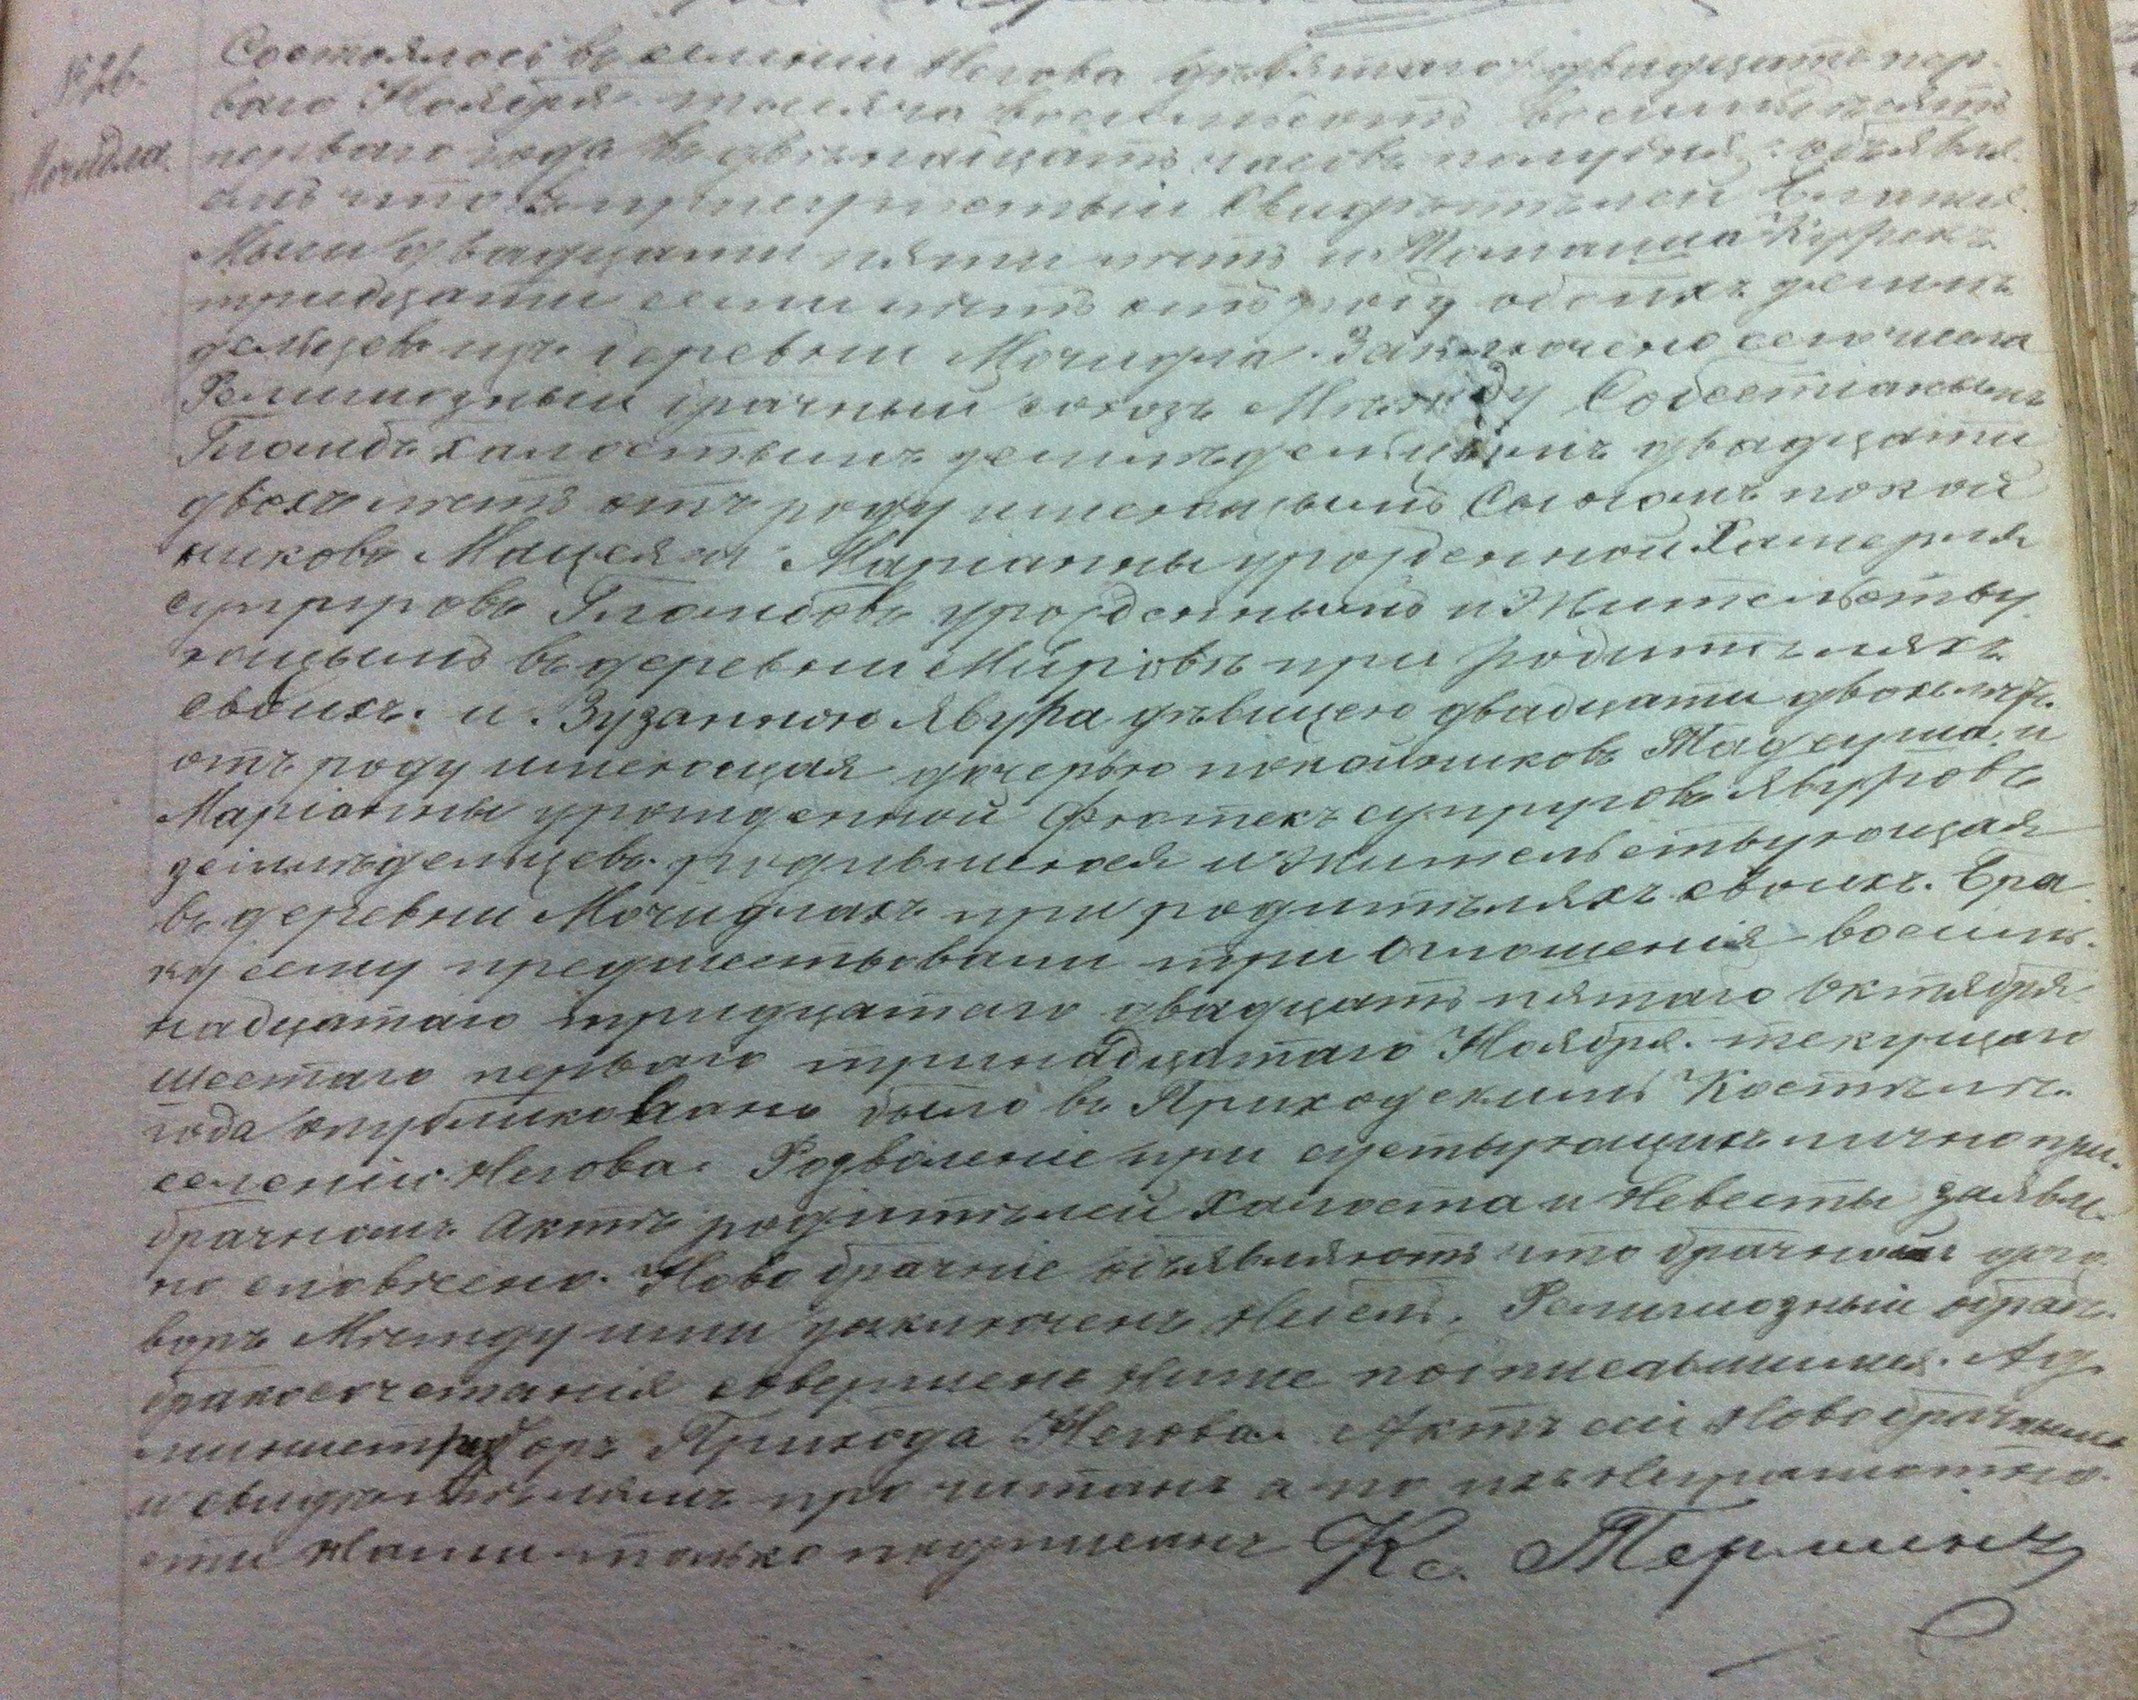 № 26.
Мочидла.
Состоялось въ селеніи Негова девятаго двадцать пер-
ваго Ноября тысяча восемьсотъ восемьдесятъ
перваго года въ двѣнадцать часовъ полудня: объявля-
емъ что въ присутствіи свидѣтелей
двадцати пяти лѣтъ и Томаша
тридцати семи лѣтъ отъ роду обоихъ земле-
дельцевъ изъ деревни Мочидла. Заключено сего числа
Религиозный брачный союзъ Между Собестіаномъ
Гломбъ халостымъ земледельцемъ двадцати
двохъ летъ отъ роду имеющымъ Сыномъ покой
никовъ Мацея и Маріанны урожденной Хамерля
супруговъ Гломбовъ урожденнымъ и Жительству
ющымъ въ деревни Мировъ при родителяхъ
своихъ. и Зузанною Явура дѣвицею двадцати двохъ летъ.
отъ роду имеющая дочерью покойниковъ Тадеуша и
Маріанны урожденной супруговъ Явуровъ
земледельцевъ родившеюся и жительствующая
въ деревни Мочидлахъ при родителяхъ своихъ. Бра
ку сему предшествовали три Оглошенія восемь-
надцатаго тридцатаго двадцать пятаго Октября
шестаго перваго тринадцатаго Ноября. текущаго
года опубликовано было въ Приходскимъ Костеле.
селеніи Негова. Родволеніе при суствующихъ лично при.
брачномъ Акте родителей Халоста и Невесты заявле-
но словесно. Новобрачніе объявляютъ что брачной дого
воръ Между ими заключенъ Небылъ. Религиозный обрадъ.
бракосочетанія совершенъ Ниже подписавшимся. Ад
министраторъ Прихода Негова. Актъ сей Новобрачнымъ
и свидетелямъ прочитанъ а по ихъ Неграмотно.
сти Нами только подписанъ Кс. Терминъ